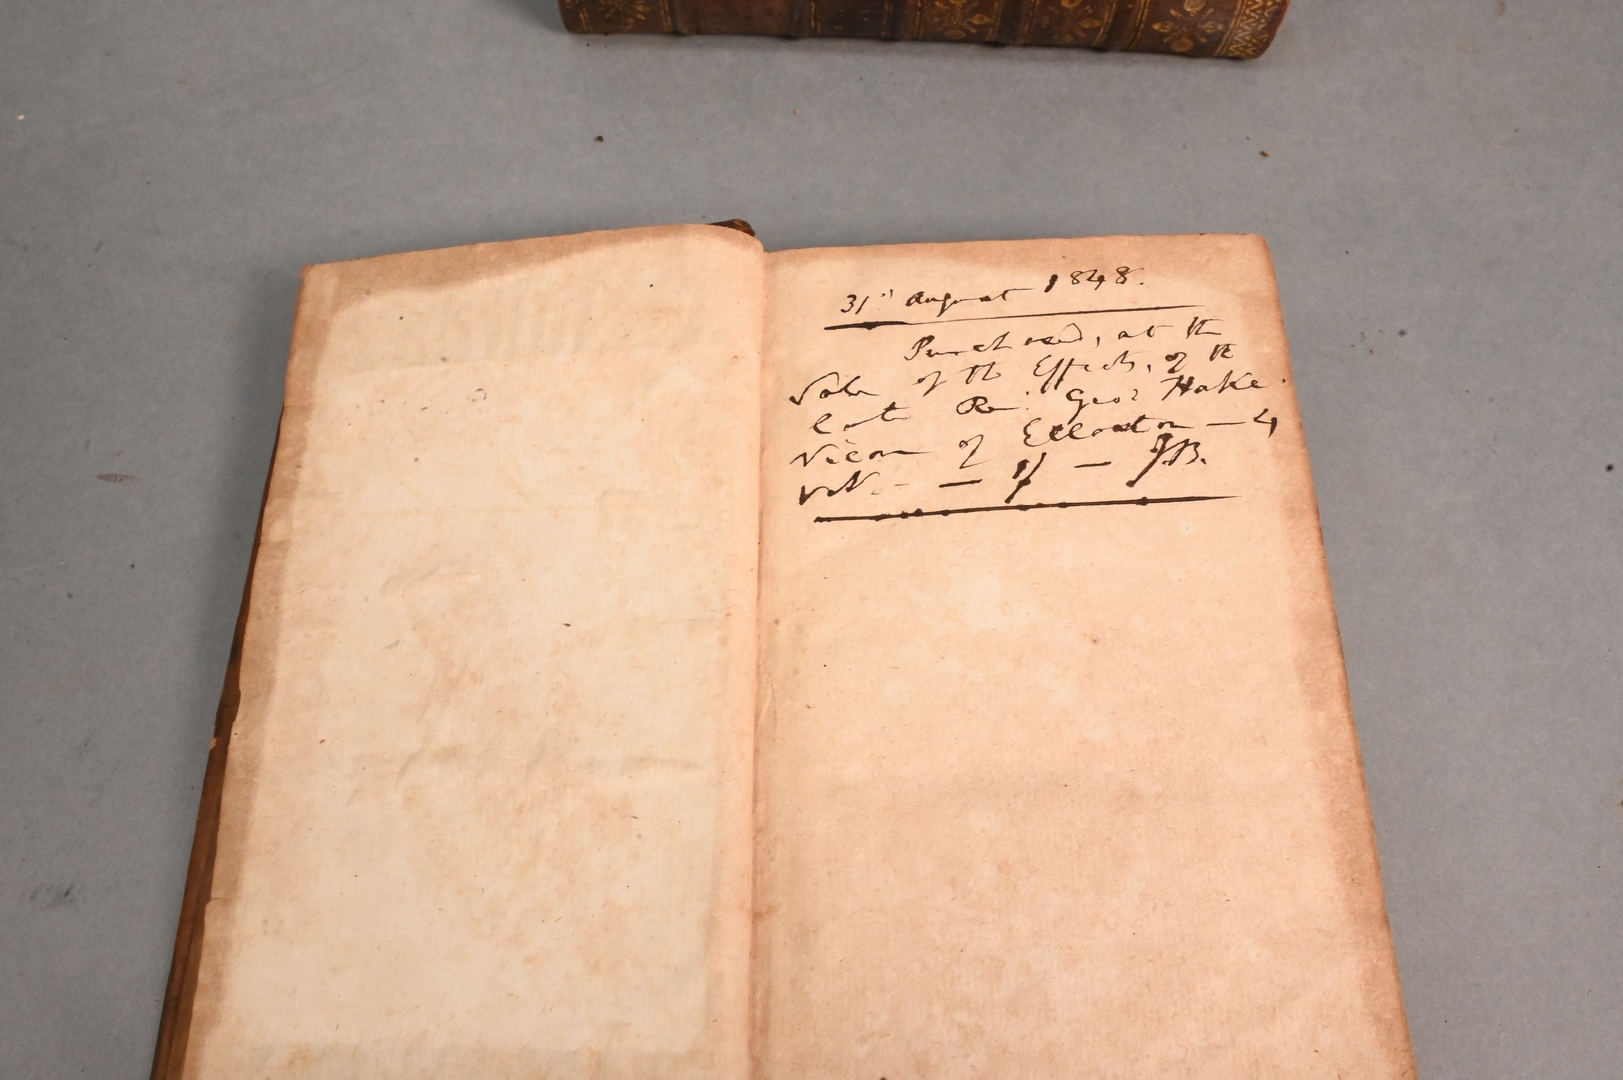 31st August 1848.
Purchased, at the
Sale of the Effects, of the
late Rev. Geo. Hake
Vicar of Ellaston — 4
Vols. — 1/ — J.B.